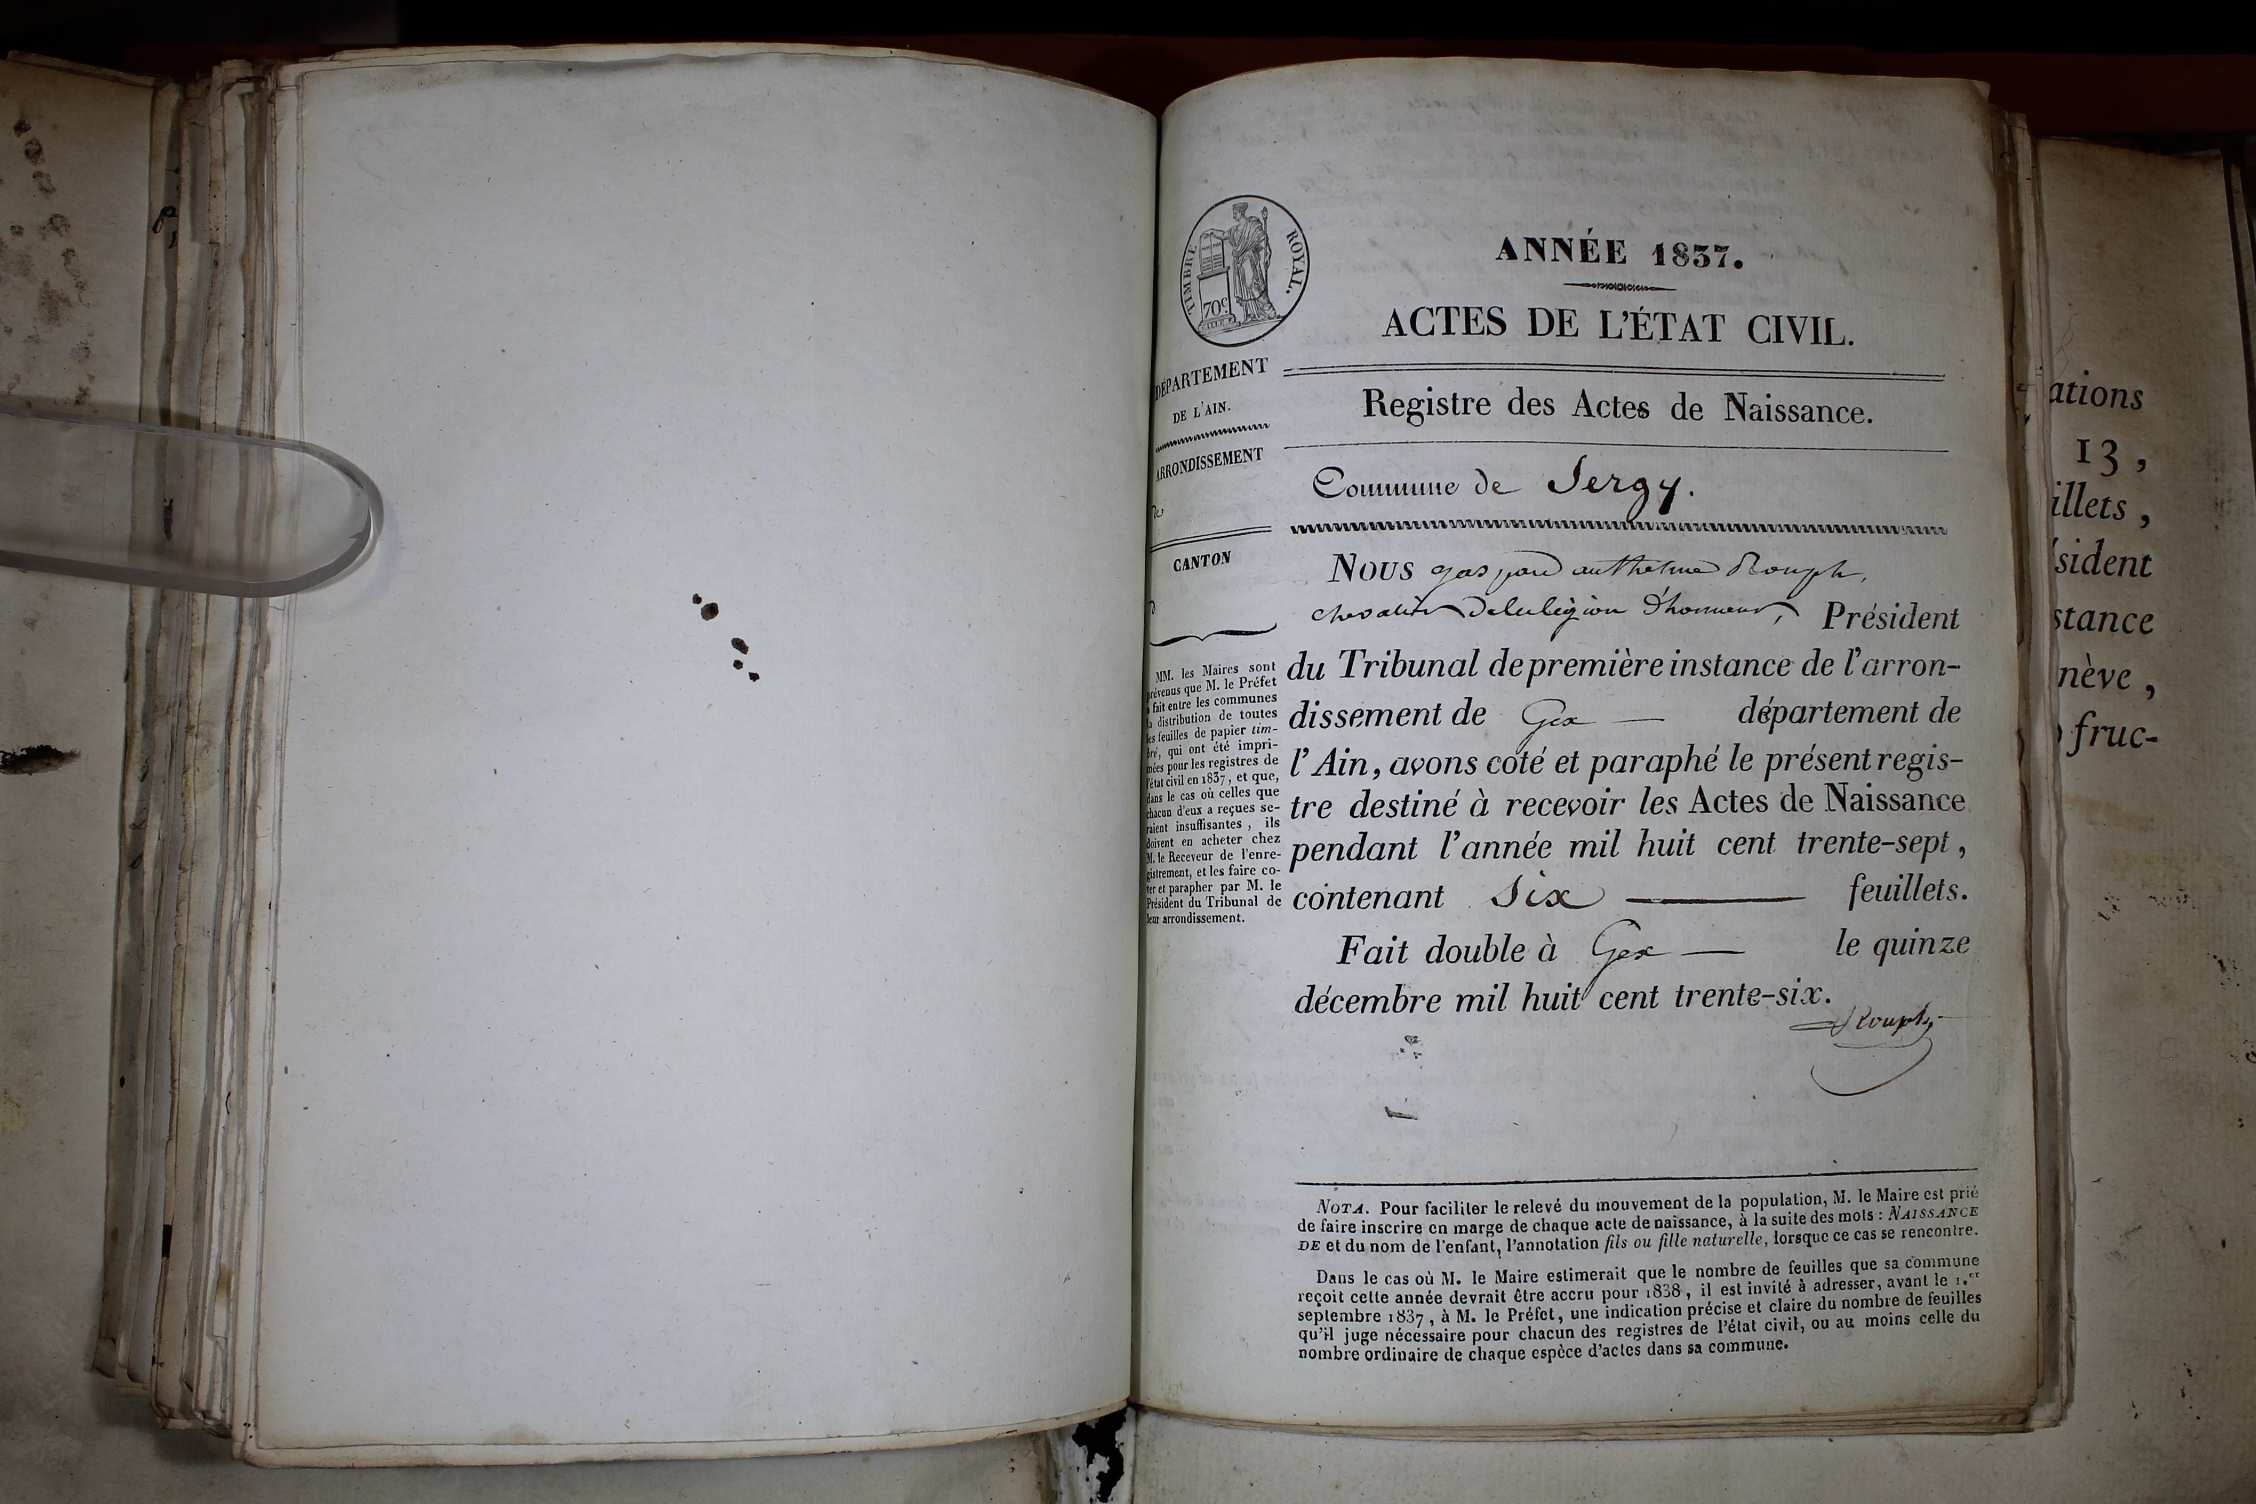 TIMBRE ROYAL.
70c.
DÉPARTEMENT
DE L'AIN.
ARRONDISSEMENT
de
CANTON
d
MM. les Maires sont
prévenus que M. le Préfet
a fait entre les communes
la distribution de toutes
les feuilles de papier tim-
bré, qui ont été impri-
mées pour les registres de
l'état civil en 1837, et que,
dans le cas où celles que
chacun d'eux a reçues se-
raient insuffisantes, ils
doivent en acheter chez
M. le Receveur de l'enre-
gistrement, et les faire co-
ter et parapher par M. le
Président du Tribunal de
leur arrondissement.
ANNÉE 1837.
ACTES DE L'ÉTAT CIVIL.
Registre des Actes de Naissance.
Commune de Sergy.
NOUS gaspard anthelme Rouph,
chevalier de la légion d'honneur, Président
du Tribunal de première instance de l'arron-
dissement de Gex — département de
l'Ain, avons coté et paraphé le présent regis-
tre destiné à recevoir les Actes de Naissance
pendant l'année mil huit cent trente-sept,
contenant Six — feuillets.
Fait double à Gex — le quinze
décembre mil huit cent trente-six.
Rouph
NOTA. Pour faciliter le relevé du mouvement de la population, M. le Maire est prié
de faire inscrire en marge de chaque acte de naissance, à la suite des mots : NAISSANCE
DE et du nom de l'enfant, l'annotation fils ou fille naturelle, lorsque ce cas se rencontre.
Dans le cas où M. le Maire estimerait que le nombre de feuilles que sa commune
reçoit cette année devrait être accru pour 1838, il est invité à adresser, avant le 1.er
septembre 1837, à M. le Préfet, une indication précise et claire du nombre de feuilles
qu'il juge nécessaire pour chacun des registres de l'état civil, ou au moins celle du
nombre ordinaire de chaque espèce d'actes dans sa commune.
ations
13,
illets,
sident
stance
nève,
fruc-